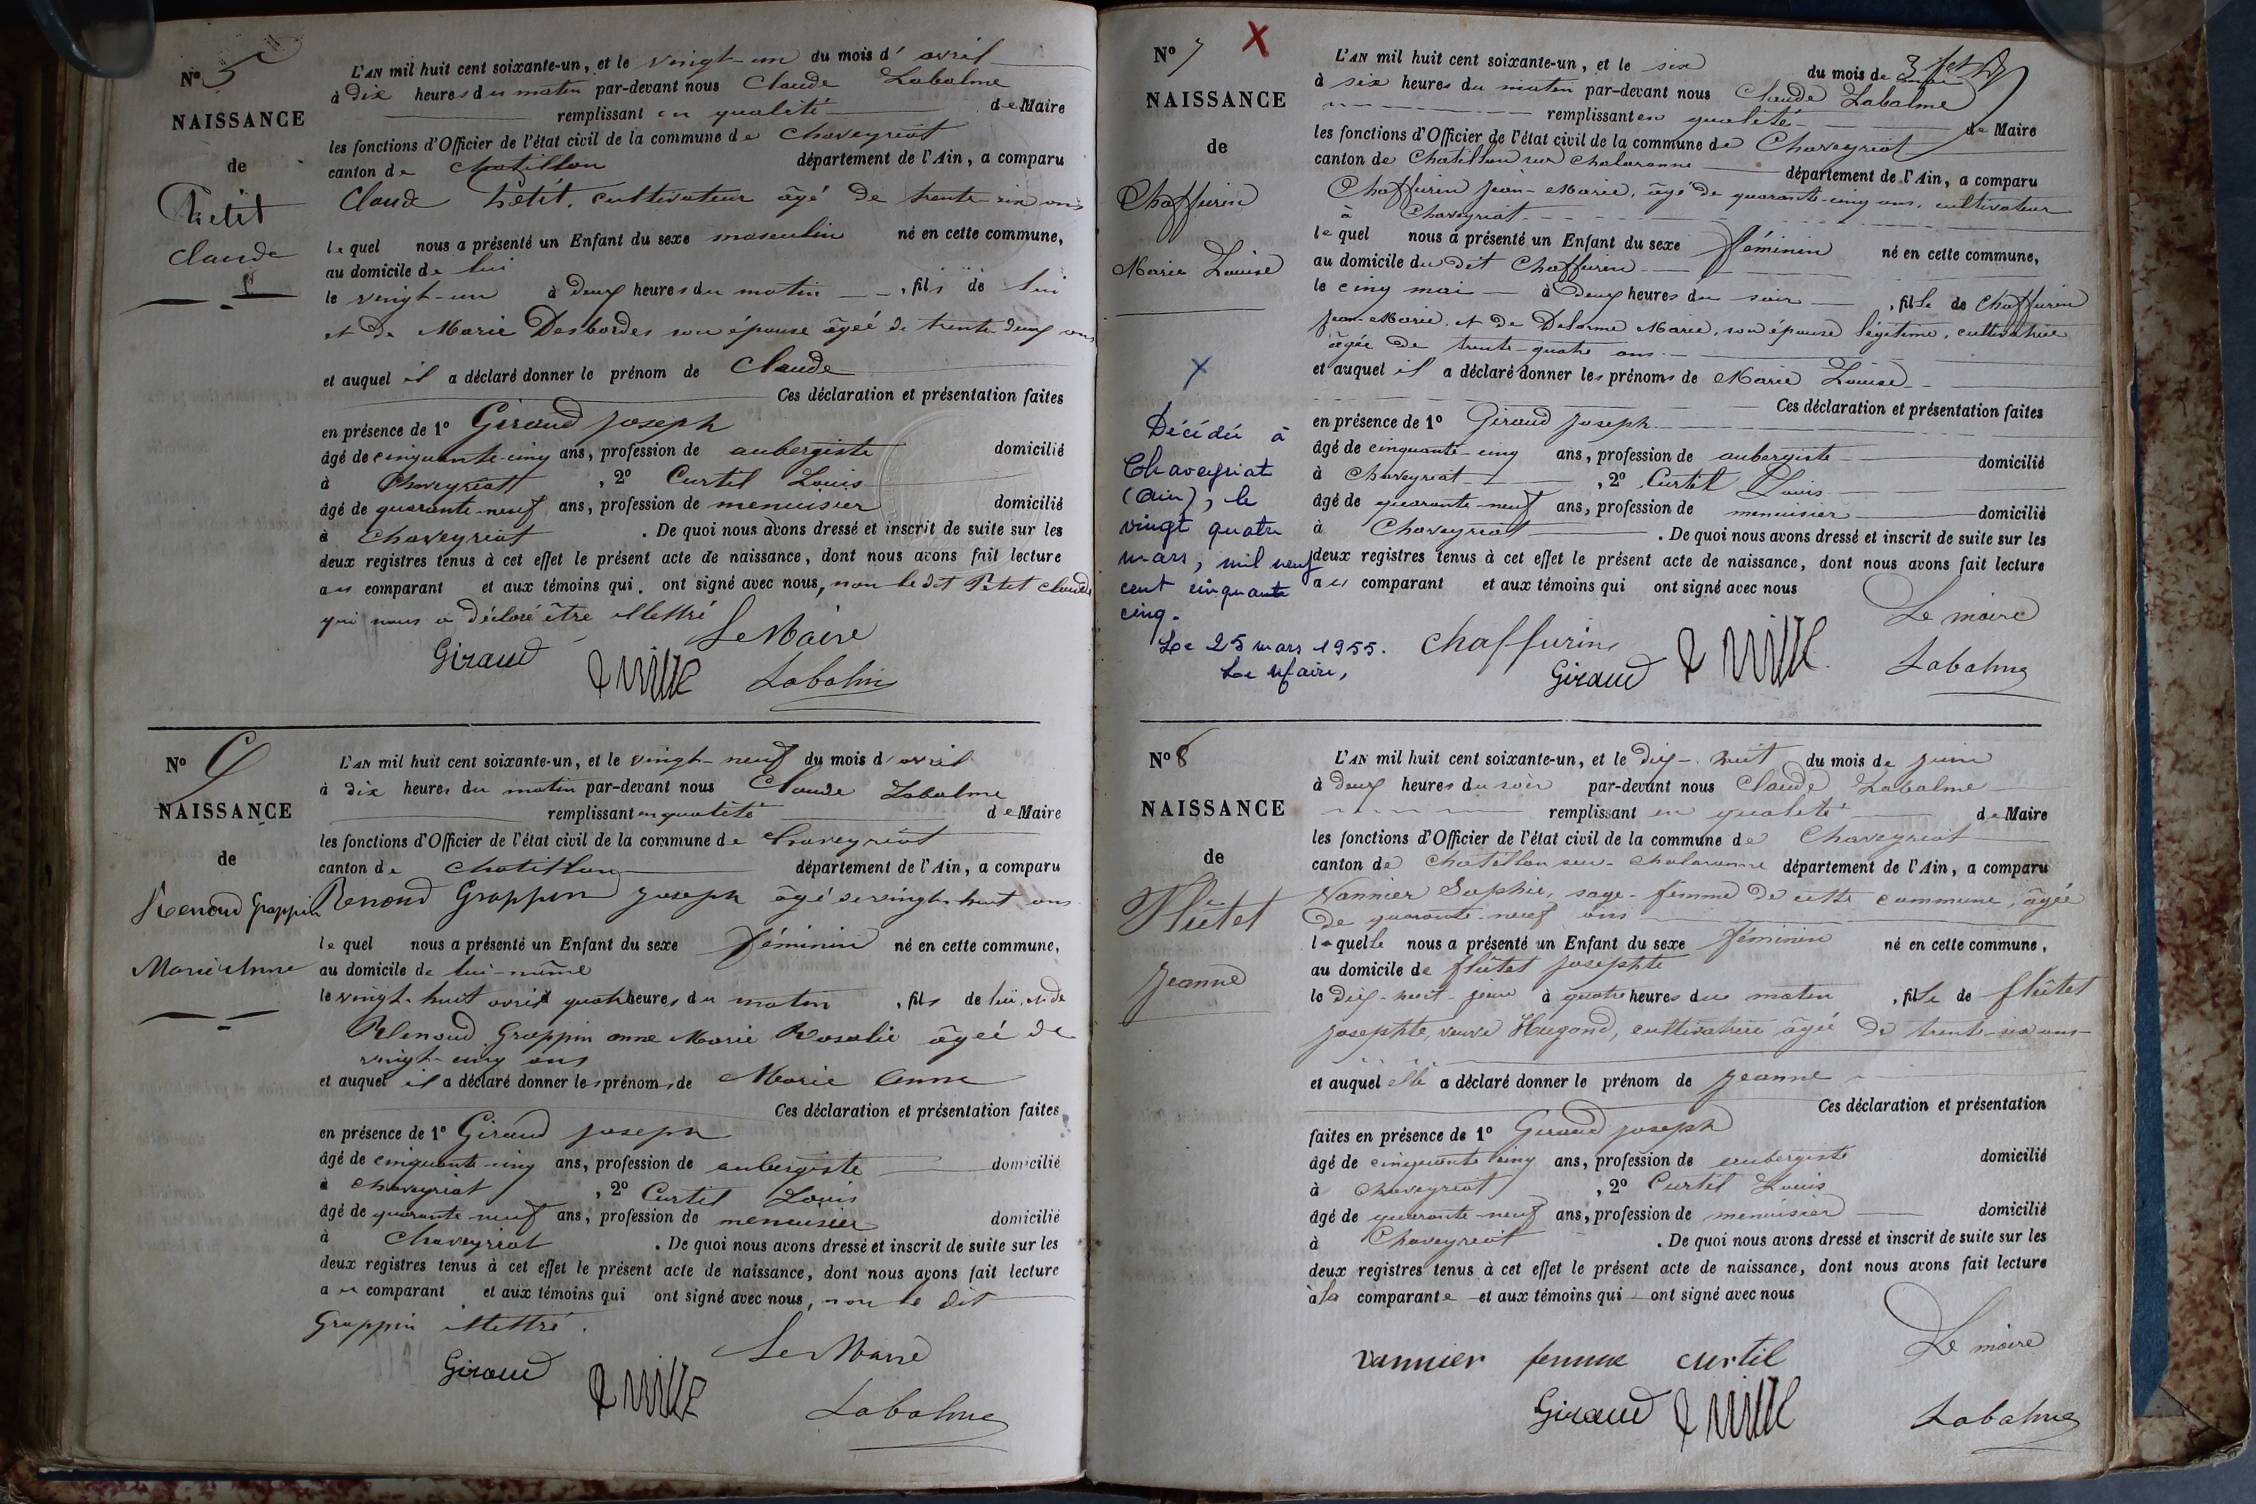 N° 5
NAISSANCE
de
Petit
Claude
L'AN mil huit cent soixante-un, et le vingt-un du mois d'avril
à dix heures du matin par-devant nous Claude Labalme
remplissant en qualité de Maire
les fonctions d'Officier de l'état civil de la commune de Chaveyriat
canton de Chatillon département de l'Ain, a comparu
Claude Petit, cultivateur âgé de trente-six ans
lequel nous a présenté un Enfant du sexe masculin né en cette commune,
au domicile de lui
le vingt-un à deux heures du matin, fils de lui
et de Marie Desbordes son épouse âgeé de trente deux ans
et auquel il a déclaré donner le prénom de Claude
Ces déclaration et présentation faites
en présence de 1° Giraud Joseph
âgé de cinquante-cinq ans, profession de aubergiste domicilié
à Chaveyriat, 2° Curtil Louis
âgé de quarante-neuf ans, profession de menuisier domicilié
à Chaveyriat. De quoi nous avons dressé et inscrit de suite sur les
deux registres tenus à cet effet le présent acte de naissance, dont nous avons fait lecture
au comparant et aux témoins qui ont signé avec nous, non le dit Petit Claude
qui nous a déclaré être illettré
Le Maire
Giraud Labalme
N° 6
NAISSANCE
de
Renoud Grappin
Marie Anne
L'AN mil huit cent soixante-un, et le vingt-neuf du mois d'avril
à dix heures du matin par-devant nous Claude Labalme
remplissant en qualité de Maire
les fonctions d'Officier de l'état civil de la commune de Chaveyriat
canton de Chatillon département de l'Ain, a comparu
Renoud Grappin Joseph âgé de vingt-huit ans
lequel nous a présenté un Enfant du sexe féminin né en cette commune,
au domicile de lui-même
le vingt-huit avril quatre heures du matin, fils de lui, et de
Renoud Grappin anne Marie Rosalie âgeé de
vingt-cinq ans
et auquel il a déclaré donner les prénoms de Marie Anne
Ces déclaration et présentation faites
en présence de 1° Giraud Joseph
âgé de cinquante-cinq ans, profession de aubergiste domicilié
à Chaveyriat, 2° Curtil Louis
âgé de quarante-neuf ans, profession de menuisier domicilié
à Chaveyriat. De quoi nous avons dressé et inscrit de suite sur les
deux registres tenus à cet effet le présent acte de naissance, dont nous avons fait lecture
au comparant et aux témoins qui ont signé avec nous, non le dit
Grappin illettré.
Le Maire
Giraud Labalme
N° 7 X
NAISSANCE
de
Chaffurin
Marie Louise
X
Décédée à
Chaveyriat
(Ain), le
vingt quatre
mars, mil neuf
cent cinquante
cinq.
Le 25 mars 1955.
Le Maire,
L'AN mil huit cent soixante-un, et le six du mois de mai
à six heures du matin par-devant nous Claude Labalme
remplissant en qualité de Maire
les fonctions d'Officier de l'état civil de la commune de Chaveyriat
canton de Chatillon sur Chalaronne département de l'Ain, a comparu
Chaffurin Jean-Marie, âgé de quarante-cinq ans, cultivateur
à Chaveyriat
lequel nous a présenté un Enfant du sexe féminin né en cette commune,
au domicile du dit Chaffurin
le cinq mai à deux heures du soir, fille de Chaffurin
Jean-Marie, et de Delorme Marie, son épouse légitime, cultivatrice
âgée de trente-quatre ans
et auquel il a déclaré donner les prénoms de Marie Louise
Ces déclaration et présentation faites
en présence de 1° Giraud Joseph
âgé de cinquante-cinq ans, profession de aubergiste domicilié
à Chaveyriat, 2° Curtil Louis
âgé de quarante-neuf ans, profession de menuisier domicilié
à Chaveyriat. De quoi nous avons dressé et inscrit de suite sur les
deux registres tenus à cet effet le présent acte de naissance, dont nous avons fait lecture
au comparant et aux témoins qui ont signé avec nous
Le maire
Chaffurin Giraud Labalme
N° 8
NAISSANCE
de
Flûtet
Jeanne
L'AN mil huit cent soixante-un, et le dix-huit du mois de juin
à deux heures du soir par-devant nous Claude Labalme
remplissant en qualité de Maire
les fonctions d'Officier de l'état civil de la commune de Chaveyriat
canton de Chatillon sur-Chalaronne département de l'Ain, a comparu
Vannier Sophie, sage-femme de cette commune, âgée
de quarante-neuf ans
laquelle nous a présenté un Enfant du sexe féminin né en cette commune,
au domicile de flûtet Josephte
le dix-huit-juin à quatre heures du matin, fille de flûtet
Josephte, veuve Hugond, cultivatrice âgée de trente-six ans
et auquel elle a déclaré donner le prénom de Jeanne
Ces déclaration et présentation
faites en présence de 1° Giraud Joseph
âgé de cinquante cinq ans, profession de aubergiste domicilié
à Chaveyriat, 2° Curtil Louis
âgé de quarante-neuf ans, profession de menuisier domicilié
à Chaveyriat. De quoi nous avons dressé et inscrit de suite sur les
deux registres tenus à cet effet le présent acte de naissance, dont nous avons fait lecture
à la comparante et aux témoins qui ont signé avec nous
Le maire
vannier femme curtil
Giraud Labalme